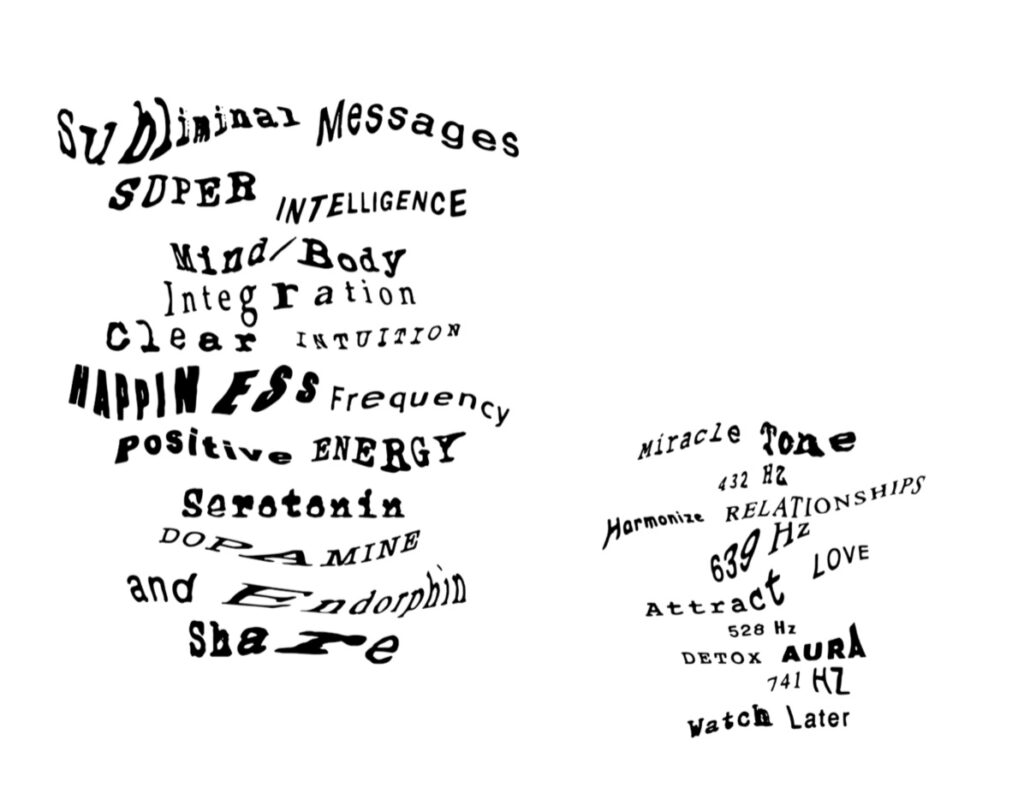 Subliminal Messages
SUPER INTELLIGENCE
Mind/Body
Integration
Clear INTUITION
HAPPINESS Frequency
Positive ENERGY
Serotonin
DOPAMINE
and Endorphin
Share
Miracle Tone
432 Hz
Harmonize RELATIONSHIPS
639 Hz
Attract LOVE
528 Hz
DETOX AURA
741 HZ
Watch Later